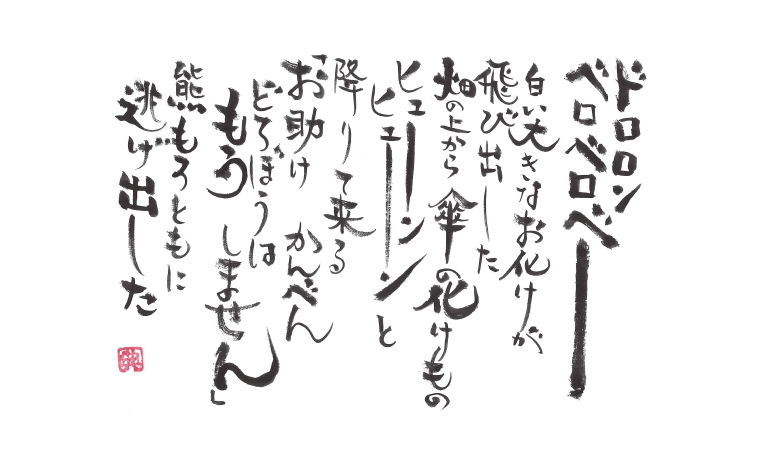 ドロロン
ベロベロベー
白い大きなお化けが
飛び出した
畑の上から 傘の化けもの
ヒューーン
ヒューーンと
降りて来る
「お助け かんべん
どろぼうは
もう しません」
熊もろともに
逃げ出した